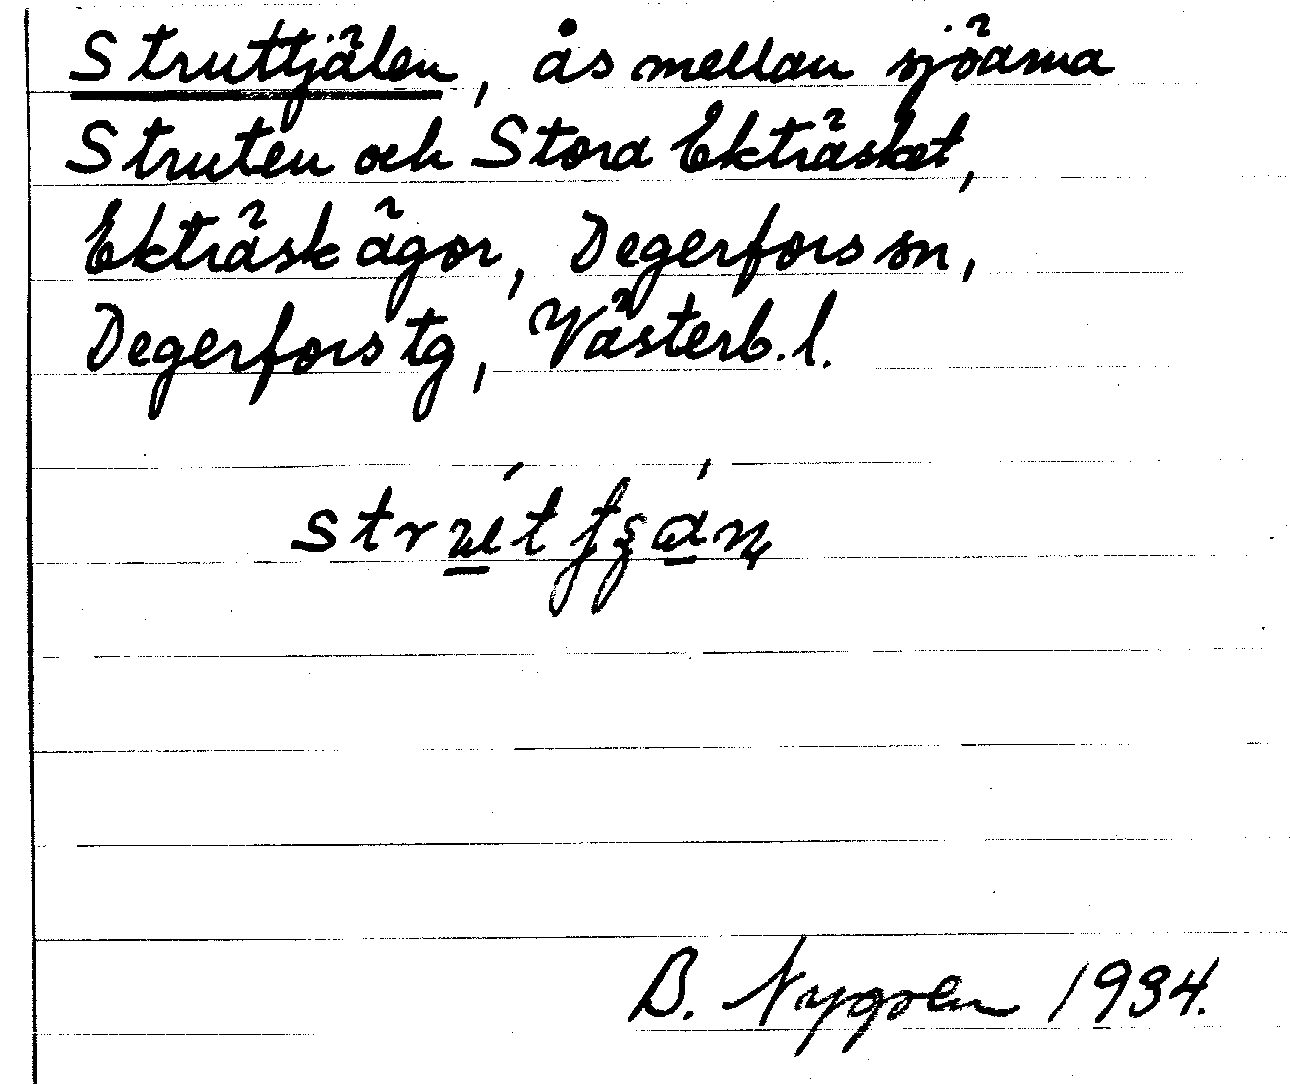 Struttjälen, ås mellan sjöarna
Struten och Stora Ekträsket,
Ekträsk ägor, Degerfors sn,
Degerfors tg, Västerb. l.
B. Nygren 1934.